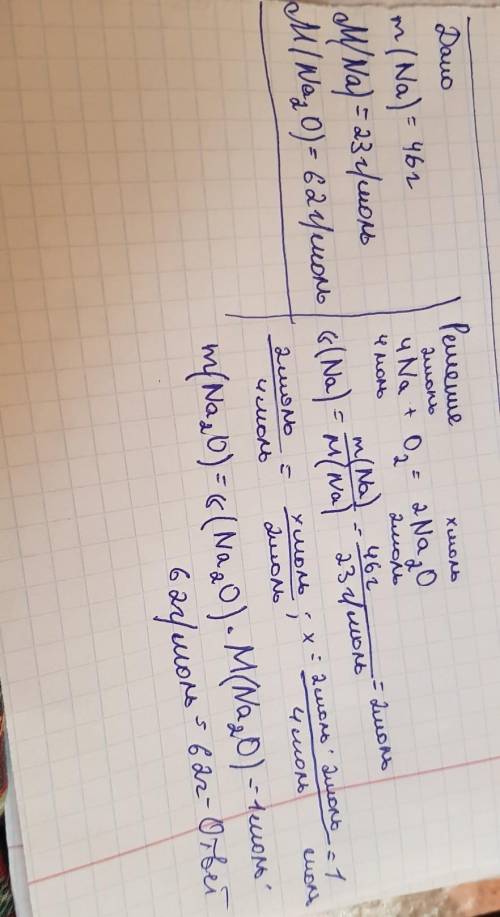 Дано
m(Na) = 46г
M(Na) = 23г/моль
M(Na2O) = 62г/моль
Решение
2моль xмоль
4Na + O2 = 2Na2O
4моль 2моль
б(Na) = m(Na)/M(Na) = 46г/23г/моль = 2моль
2моль/4моль = xмоль/2моль; x = 2моль·2моль/4моль = 1 моль
m(Na2O) = б(Na2O)·M(Na2O) = 1моль·
62г/моль = 62г – Ответ